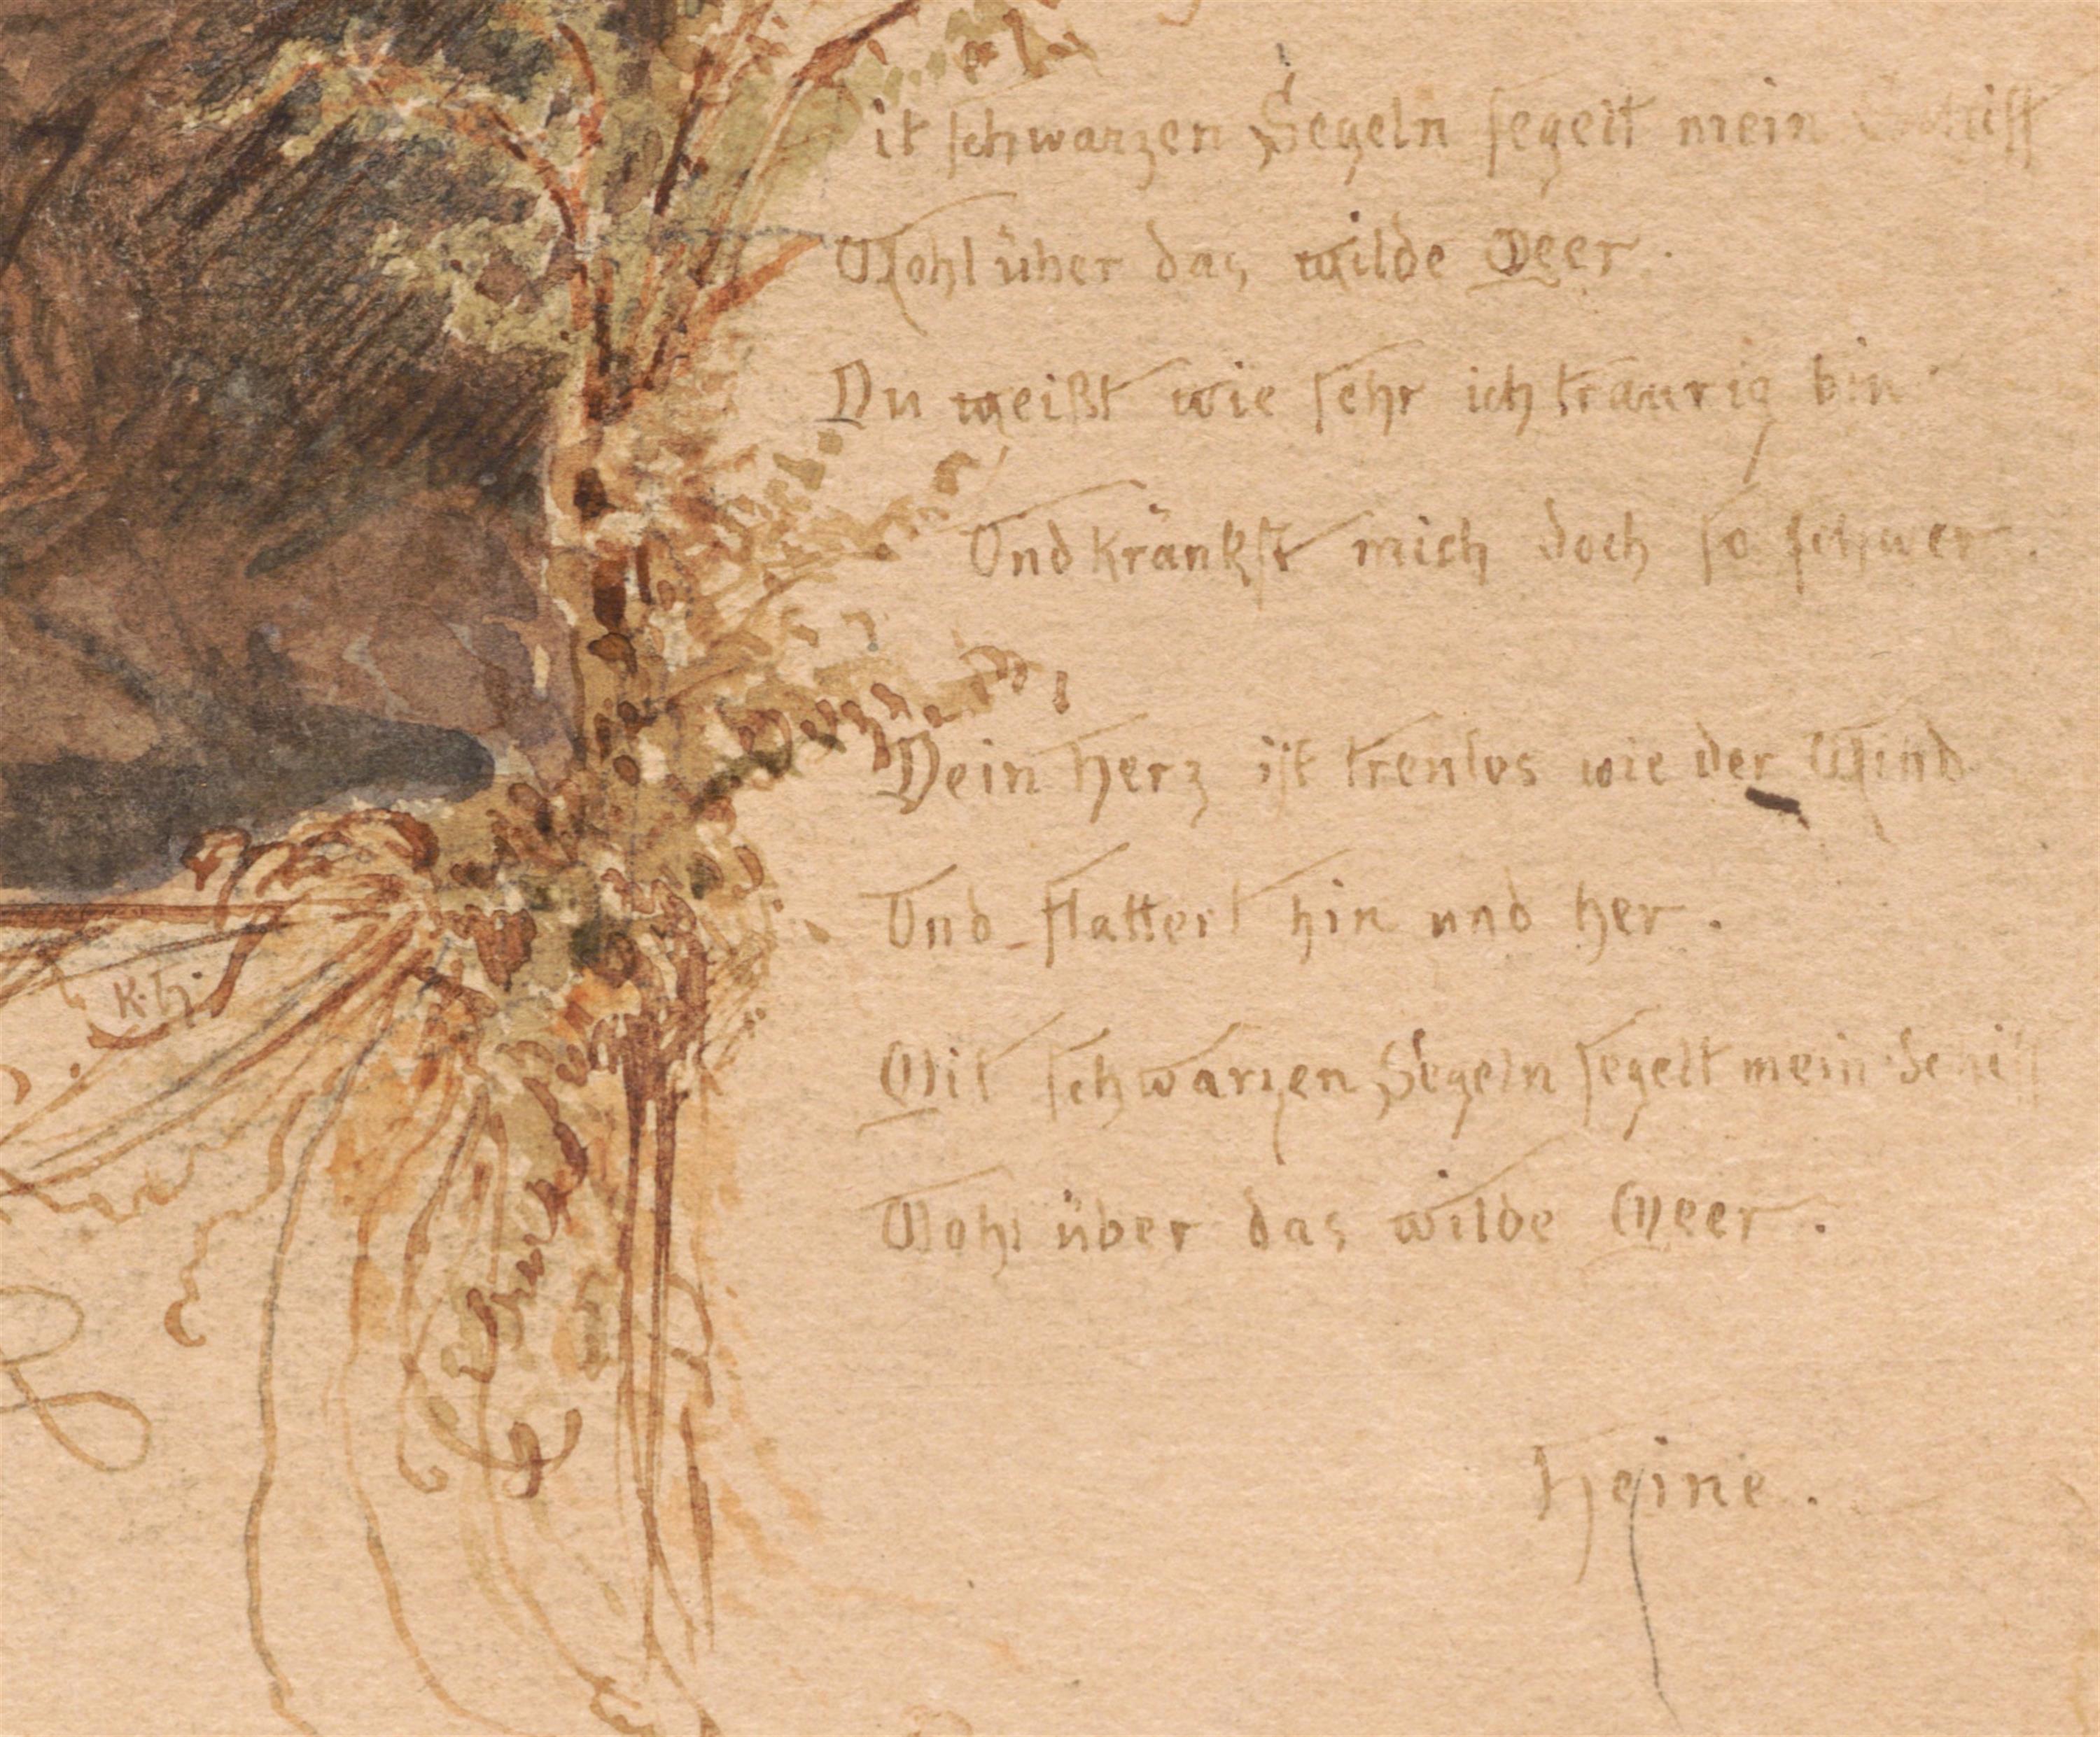 it schwarzen Segeln segelt mein Schiff
Wohl über das wilde Meer.
Du weißt wie sehr ich traurig bin
Und kränkst mich doch so schwer.
Dein Herz ist treulos wie der Wind
Und flattert hin und her.
Mit schwarzen Segeln segelt mein Schiff
Wohl über das wilde Meer.
Heine.
K. H.